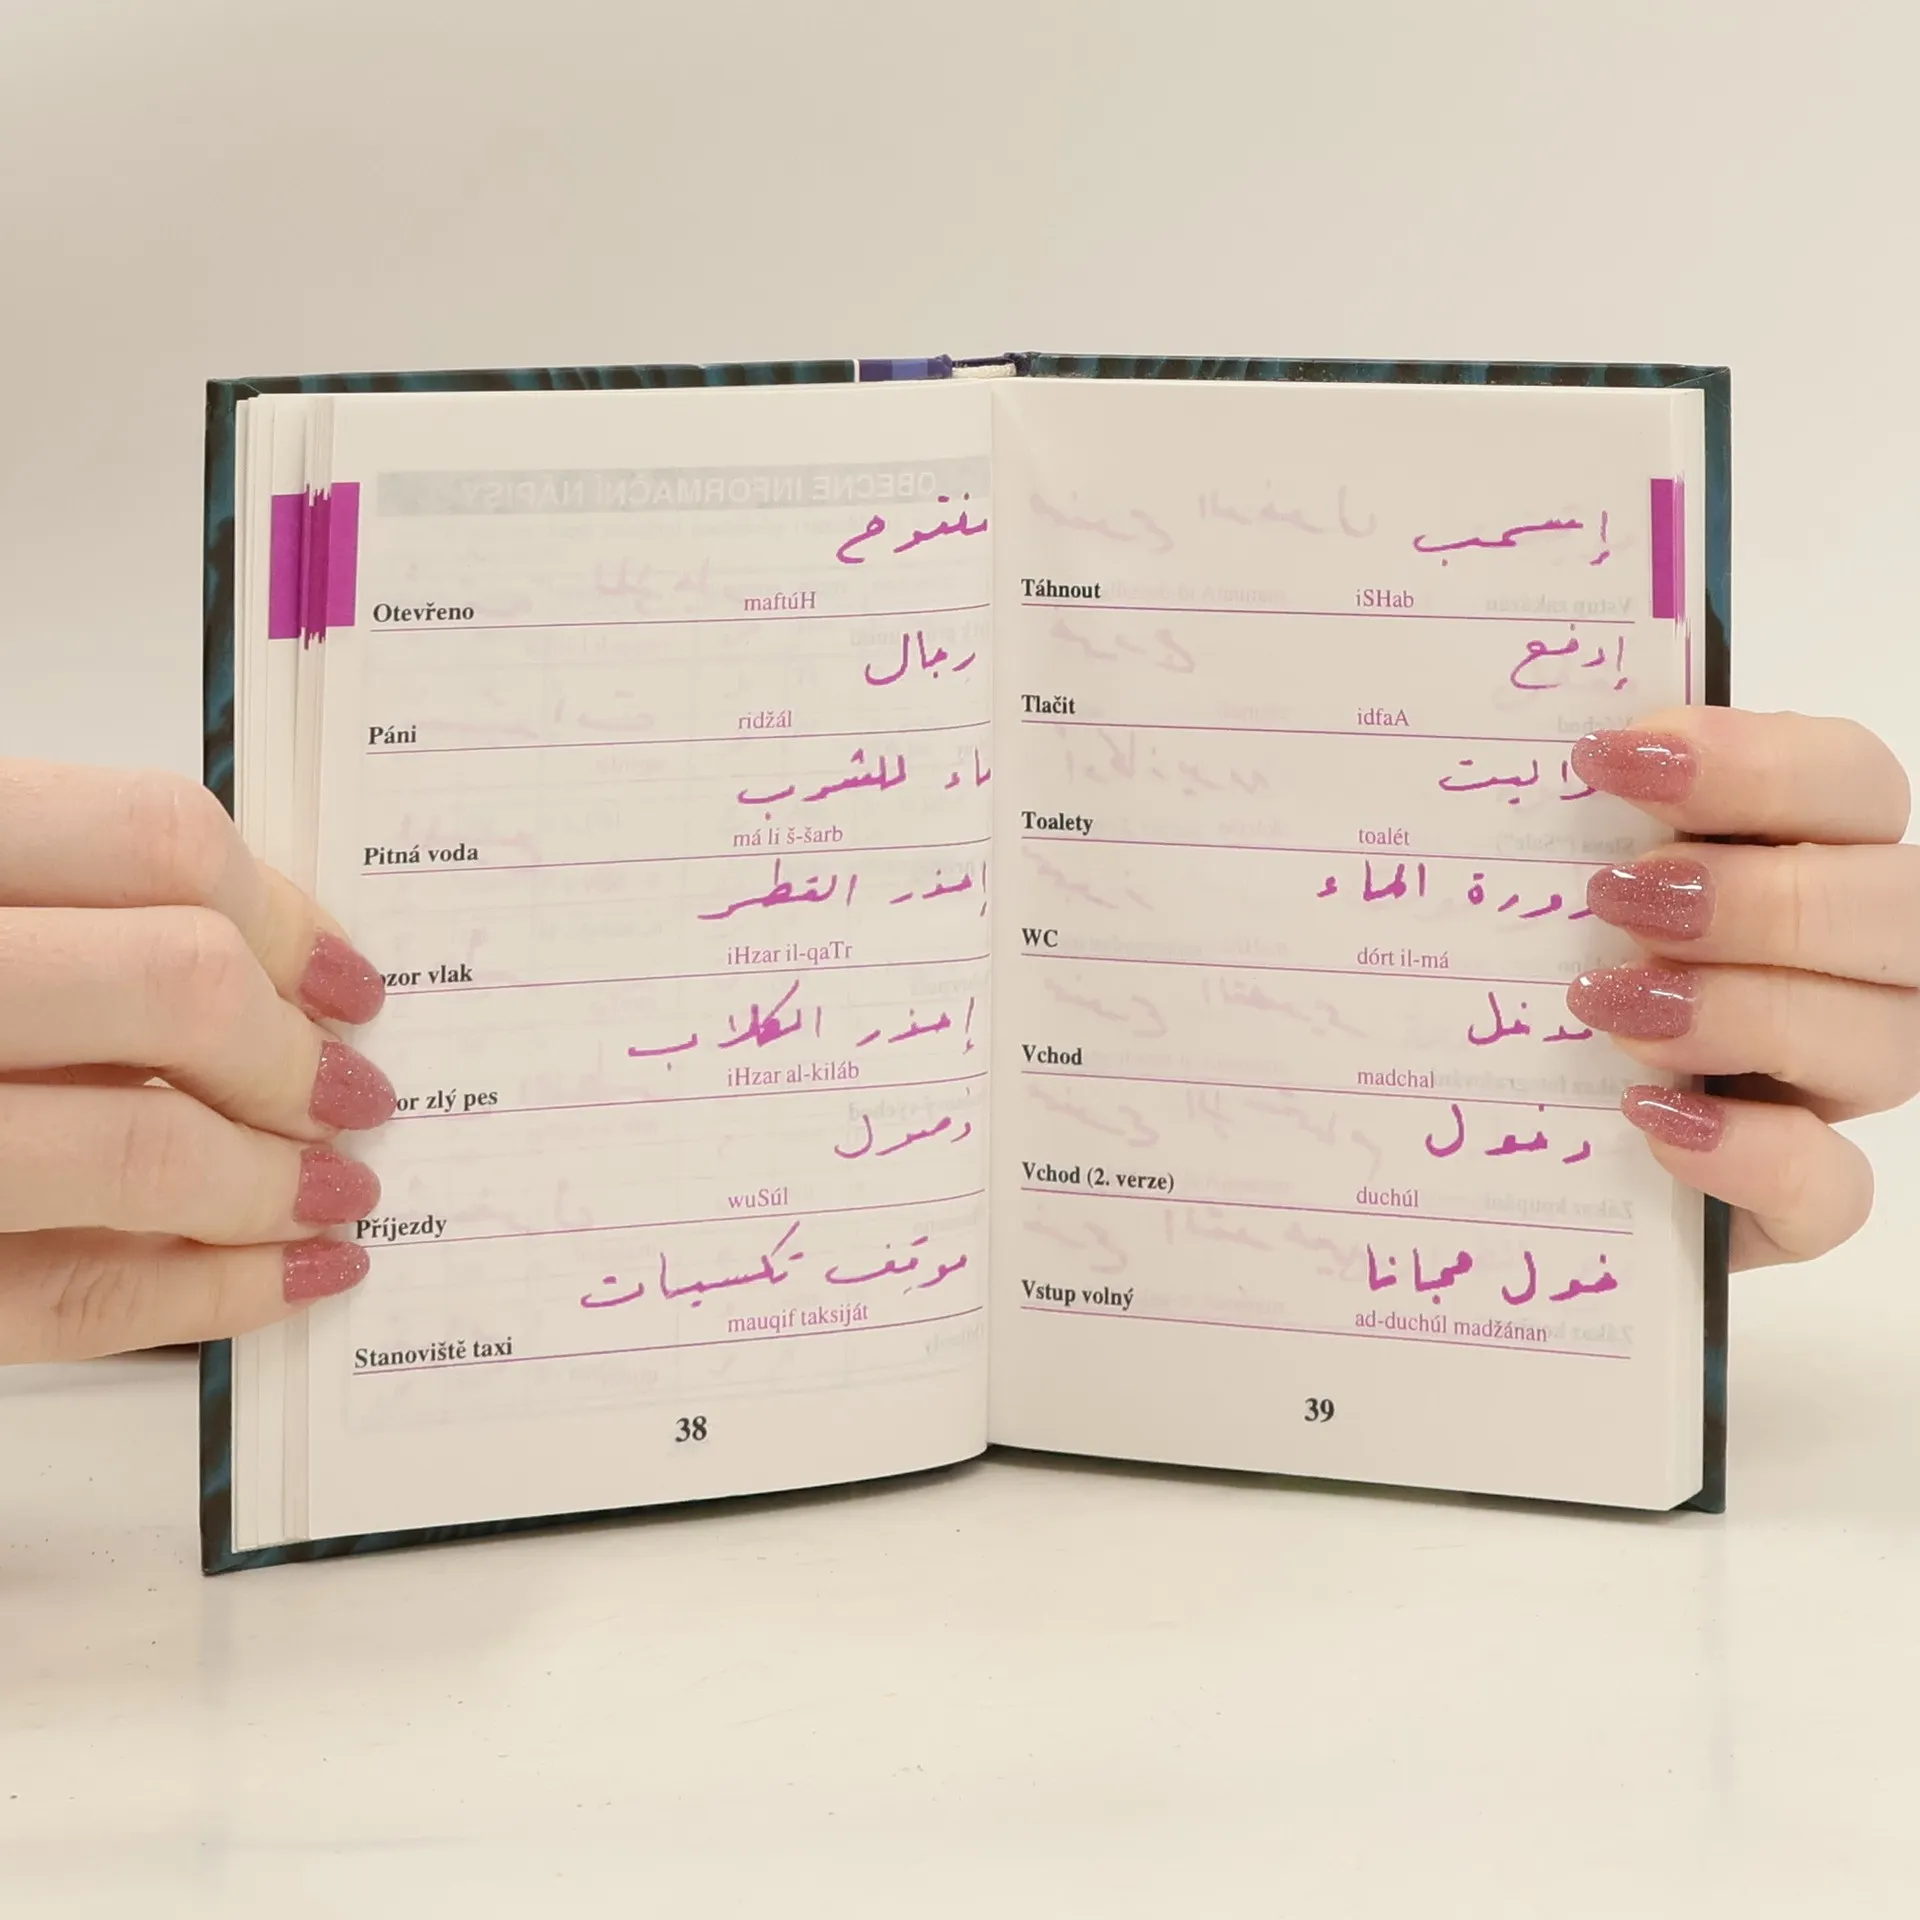 Otevřeno
maftúH
رجال
Páni
ridžál
للشرب
Pitná voda
má li š-šarb
إحذر القطر
vlak
iHzar il-qaTr
إحذر الكلاب
zlý pes
iHzar al-kiláb
وصول
Příjezdy
wuSúl
موقف تكسيات
Stanoviště taxi
mauqif taksiját
38
إسحب
Táhnout
iSHab
إدفع
Tlačit
idfaA
Toalety
toalét
الماء
WC
dórt il-má
مدخل
Vchod
madchal
دخول
Vchod (2. verze)
duchúl
مجانا
Vstup volný
ad-duchúl madžánan
39